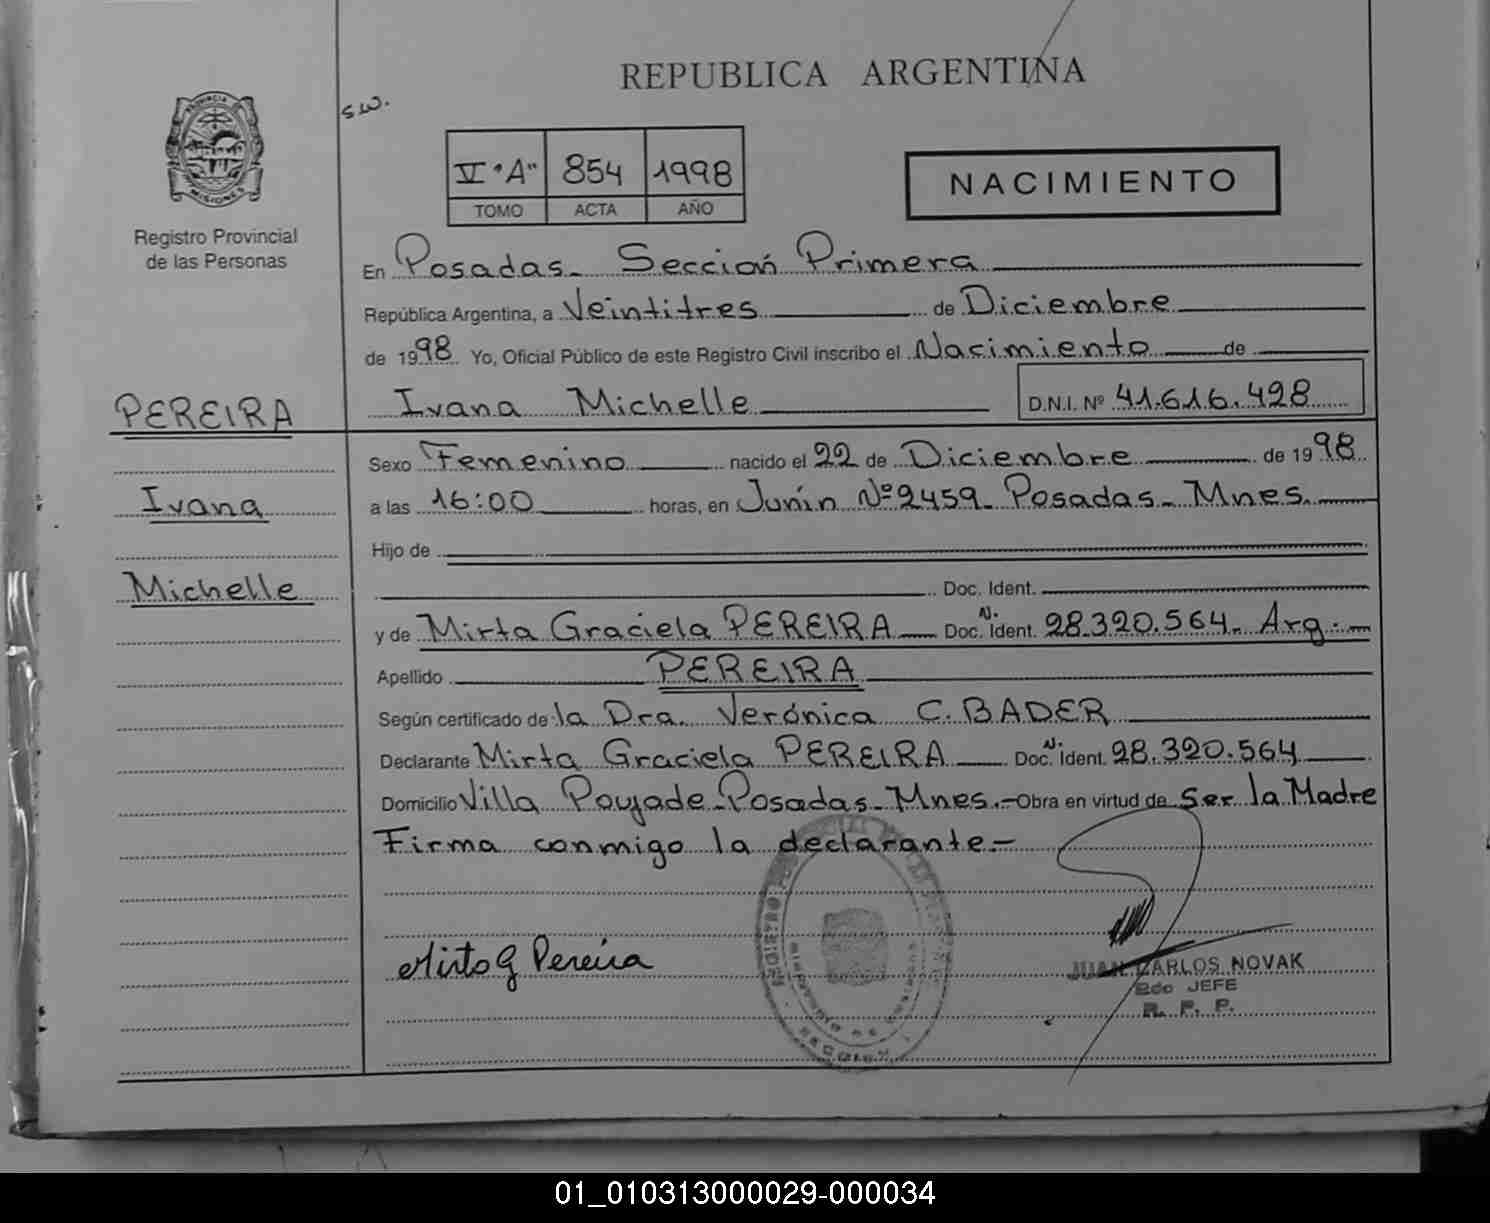 REPUBLICA ARGENTINA
s.w.
V "A" 854 1998
TOMO ACTA AÑO
NACIMIENTO
PROVINCIA DE MISIONES
Registro Provincial
de las Personas
En Posadas - Sección Primera
República Argentina, a Veintitres de Diciembre
de 1998 Yo, Oficial Público de este Registro Civil inscribo el Nacimiento de
PEREIRA
Ivana Michelle D.N.I. Nº 41.616.428
Sexo Femenino nacido el 22 de Diciembre de 1998
Ivana
a las 16:00 horas, en Junín Nº 2459 - Posadas - Mnes.
Hijo de
Michelle
Doc. Ident.
y de Mirta Graciela PEREIRA Doc. N. Ident. 28.320.564 - Arg.
Apellido PEREIRA
Según certificado de la Dra. Verónica C. BADER
Declarante Mirta Graciela PEREIRA Doc. N. Ident. 28.320.564
Domicilio Villa Poujade - Posadas - Mnes. - Obra en virtud de Ser la Madre
Firma conmigo la declarante -
Mirta G Pereira
JUAN CARLOS NOVAK
2do JEFE
R. P. P.
01_010313000029-000034